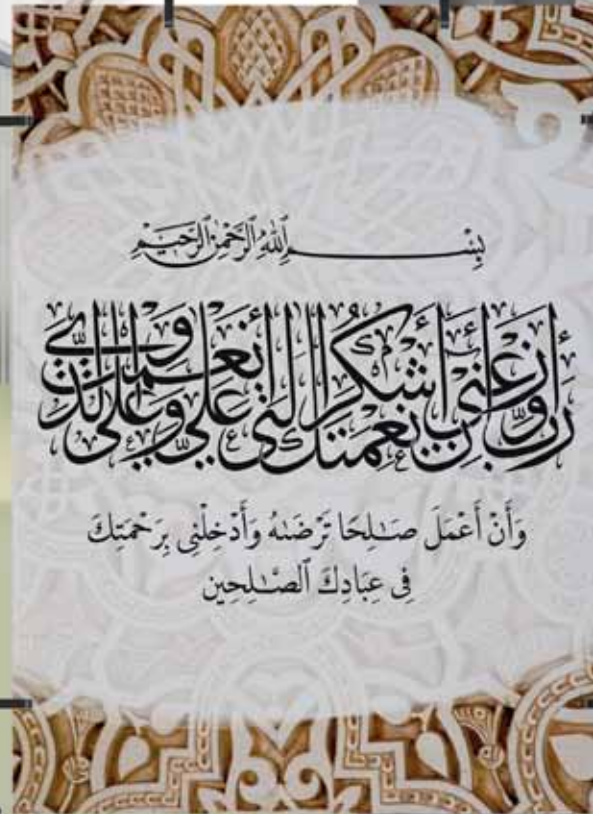 بِسْمِ ٱللَّهِ ٱلرَّحْمَٰنِ ٱلرَّحِيمِ
رَبِّ أَوْزِعْنِي أَنْ أَشْكُرَ نِعْمَتَكَ الَّتِي أَنْعَمْتَ عَلَيَّ وَعَلَىٰ وَالِدَيَّ
وَأَنْ أَعْمَلَ صَـٰلِحًا تَرْضَىٰهُ وَأَدْخِلْنِى بِرَحْمَتِكَ
فِى عِبَادِكَ ٱلصَّـٰلِحِين